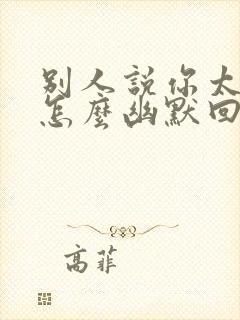 別人說你太
怎麼幽默回
高菲